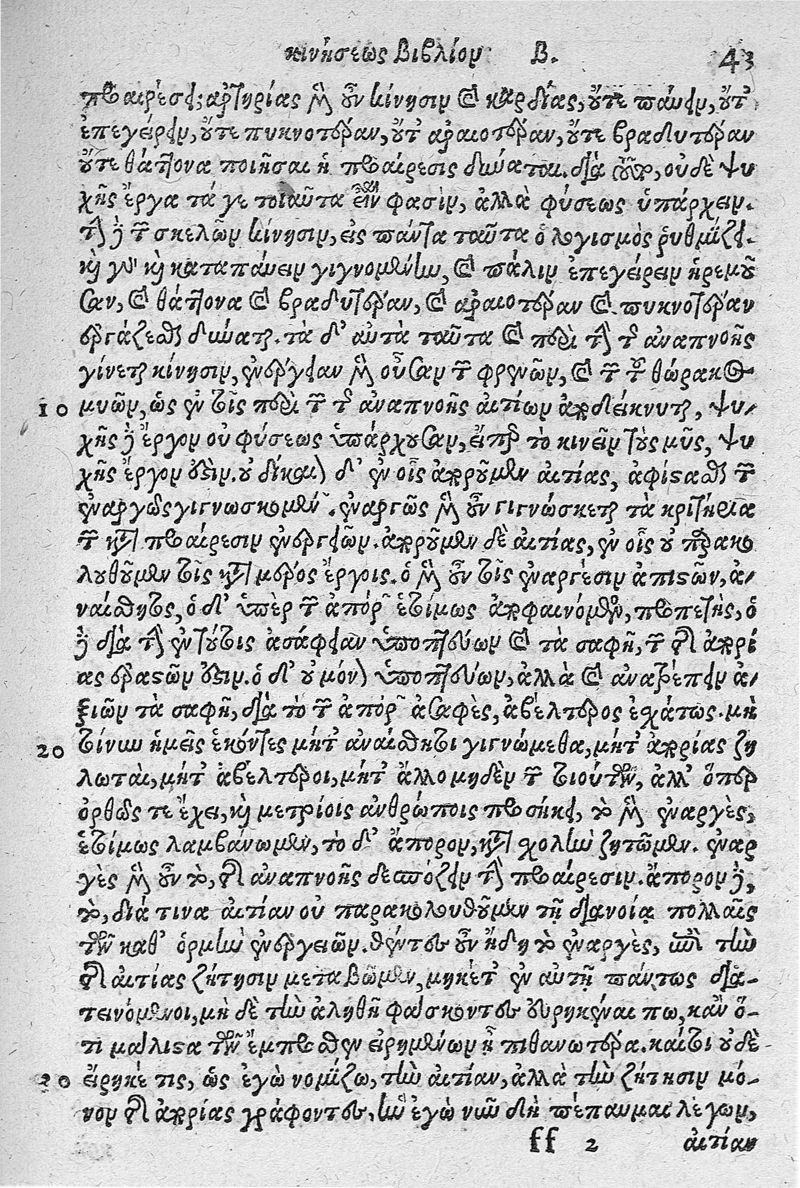 κινήσεως Βιβλίον Β. 43
προαιρέσει; ἀρτηρίας μὲν οὖν κίνησιν καὶ καρδίας, οὔτε παύειν, οὔτ᾽
ἐπεγείρειν, οὔτε πυκνοτέραν, οὔτ᾽ ἀραιοτέραν, οὔτε βραδυτέραν
οὔτε θάττονα ποιῆσαι ἡ προαίρεσις δύναται. διὰ τοῦτο, οὐδὲ ψυ
χῆς ἔργα τά γε τοιαῦτα εἶναί φασιν, ἀλλὰ φύσεως ὑπάρχειν.
τὴν δὲ τῶν σκελῶν κίνησιν, εἰς πάντα ταῦτα ὁ λογισμὸς ῥυθμίζει.
καὶ γὰρ καὶ καταπάυειν γιγνομένην, καὶ πάλιν ἐπεγείρειν ἠρεμοῦ
σαν, καὶ θάττονα καὶ βραδυτέραν, καὶ ἀραιοτέραν καὶ πυκνοτέραν
ἐργάζεσθαι δύναται. τὰ δ᾽ αὐτὰ ταῦτα καὶ περὶ τὴν τῆς ἀναπνοῆς
γίνεται κίνησιν, ἐνέργειαν μὲν οὖσαν τῶν φρενῶν, καὶ τῶν τοῦ θώρακος
10 μυῶν, ὡς ἐν τοῖς περὶ τῶν τῆς ἀναπνοῆς αἰτίων ἀποδείκνυται, ψυ
χῆς δὲ ἔργον οὐ φύσεως ὑπάρχουσαν, εἴπερ τὸ κινεῖν τοὺς μῦς, ψυ
χῆς ἔργον ἐστίν. οὐ δίκαιον δ᾽ ἐν οἷς ἀποροῦμεν αἰτίας, ἀφίστασθαι τῶν
ἐναργῶς γιγνωσκομένων. ἐναργῶς μὲν οὖν γιγνώσκεται τὰ κριτήρια
τῶν κατὰ προαίρεσιν ἐνεργειῶν. ἀποροῦμεν δὲ αἰτίας, ἐν οἷς οὐ παρακο
λουθοῦμεν τοῖς κατὰ μέρος ἔργοις. ὁ μὲν οὖν τοῖς ἐναργέσιν ἀπιστῶν, ἀ-
ναίσθητος, ὁ δ᾽ ὑπὲρ τῶν ἀπόρων ἑτοίμως ἀποφαινόμενος, προπετής, ὁ
δὲ διὰ τὴν ἐν τούτοις ἀσάφειαν ὑποπτεύων καὶ τὰ σαφῆ, τῶν τῆς ἀπορί
ας ἐραστῶν ἐστιν. ὁ δ᾽ οὐ μόνον ὑποπτεύων, ἀλλὰ καὶ ἀνατρέπειν ἀ-
ξιῶν τὰ σαφῆ, διὰ τὸ τῶν ἀπόρων ἀσαφὲς, ἀβέλτερος ἐσχάτως. μὴ
20 τοίνυν ἡμεῖς ἑκόντες μήτ᾽ ἀναίσθητοι γιγνώμεθα, μήτ᾽ ἀπορίας ζη
λωταὶ, μήτ᾽ ἀβέλτεροι, μήτ᾽ ἄλλο μηδὲν τῶν τοιούτων, ἀλλ᾽ ὅπερ
ὀρθῶς τε ἔχει, καὶ μετρίοις ἀνθρώποις προσήκει, τὸ μὲν ἐναργὲς,
ἑτοίμως λαμβάνωμεν, τὸ δ᾽ ἄπορον, κατὰ σχολὴν ζητῶμεν. ἐναρ
γὲς μὲν οὖν τὸ, τῆς ἀναπνοῆς δεσπόζειν τὴν προαίρεσιν. ἄπορον δὲ,
τὸ, διά τινα αἰτίαν οὐ παρακολουθοῦμεν τῇ διανοίᾳ πολλαῖς
τῶν καθ᾽ ὁρμὴν ἐνεργειῶν. θέντες οὖν ἤδη τὸ ἐναργὲς, ἐπὶ τὴν
τῆς αἰτίας ζήτησιν μεταβῶμεν, μηκέτ᾽ ἐν αὐτῇ πάντως δια-
τεινόμενοι, μὴ δὲ τὴν ἀληθῆ φάσκοντες εὑρηκέναι πω, κἂν ὅ-
τι μάλιστα τῶν ἔμπροσθεν εἰρημένων ᾖ πιθανωτέρα. καίτοι οὐδὲ
20 εἴρηκέ τις, ὡς ἐγὼ νομίζω, τὴν αἰτίαν, ἀλλὰ τὴν ζήτησιν μό-
νον τῆς ἀπορίας γράφοντες, ἣν ἐγὼ νῦν δὴ πέπαυμαι λέγων,
ff 2 αἰτίαν